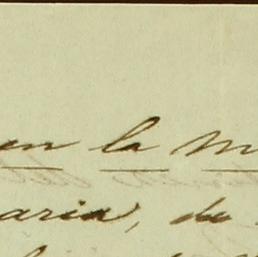 en la M
aria, de